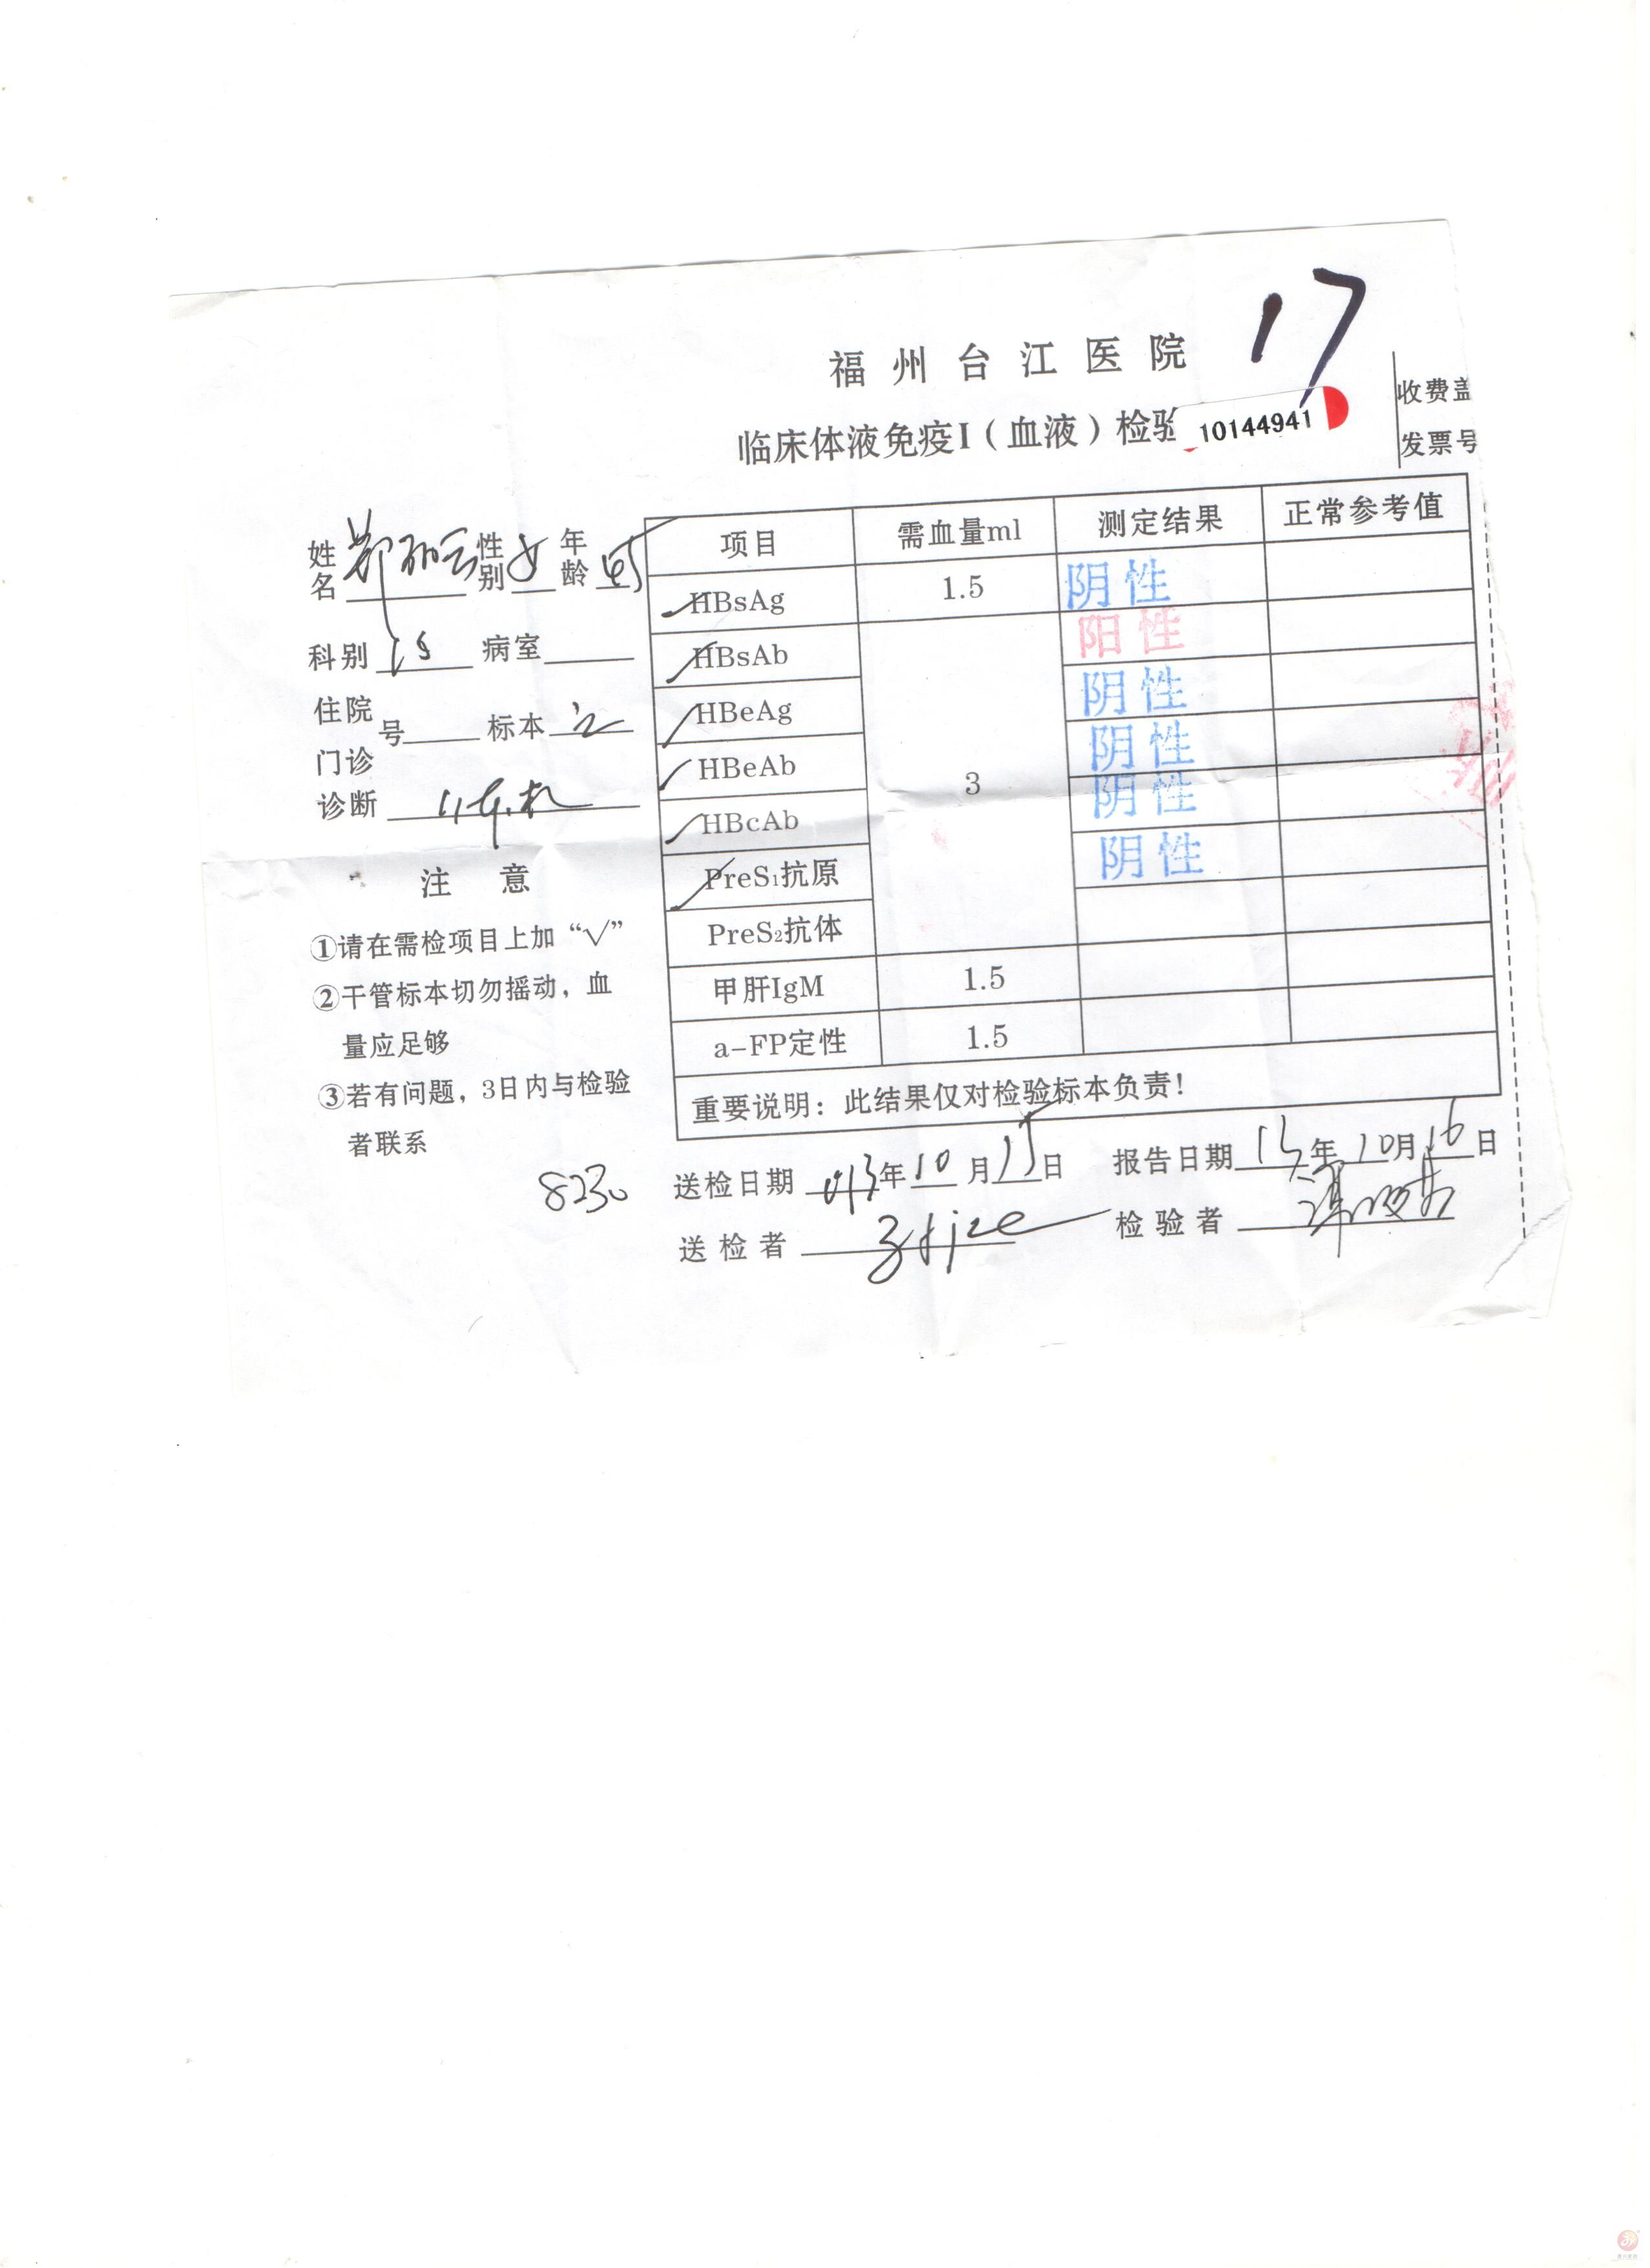 17
福州台江医院
临床体液免疫I（血液）检验
10144941
收费盖
发票号
姓名 郑 性别 女 年龄
科别 病室
住院
门诊 号 标本
诊断
注 意
①请在需检项目上加“√”
②干管标本切勿摇动，血
量应足够
③若有问题，3日内与检验
者联系
8230
项目 需血量ml 测定结果 正常参考值
✓HBsAg 1.5 阴性
✓HBsAb 阳性
✓HBeAg 阴性
✓HBeAb 3 阴性
✓HBcAb 阴性
✓PreS₁抗原 阴性
PreS₂抗体
甲肝IgM 1.5
a-FP定性 1.5
重要说明：此结果仅对检验标本负责！
送检日期 013年10月15日 报告日期 13年10月16日
送检者 检验者